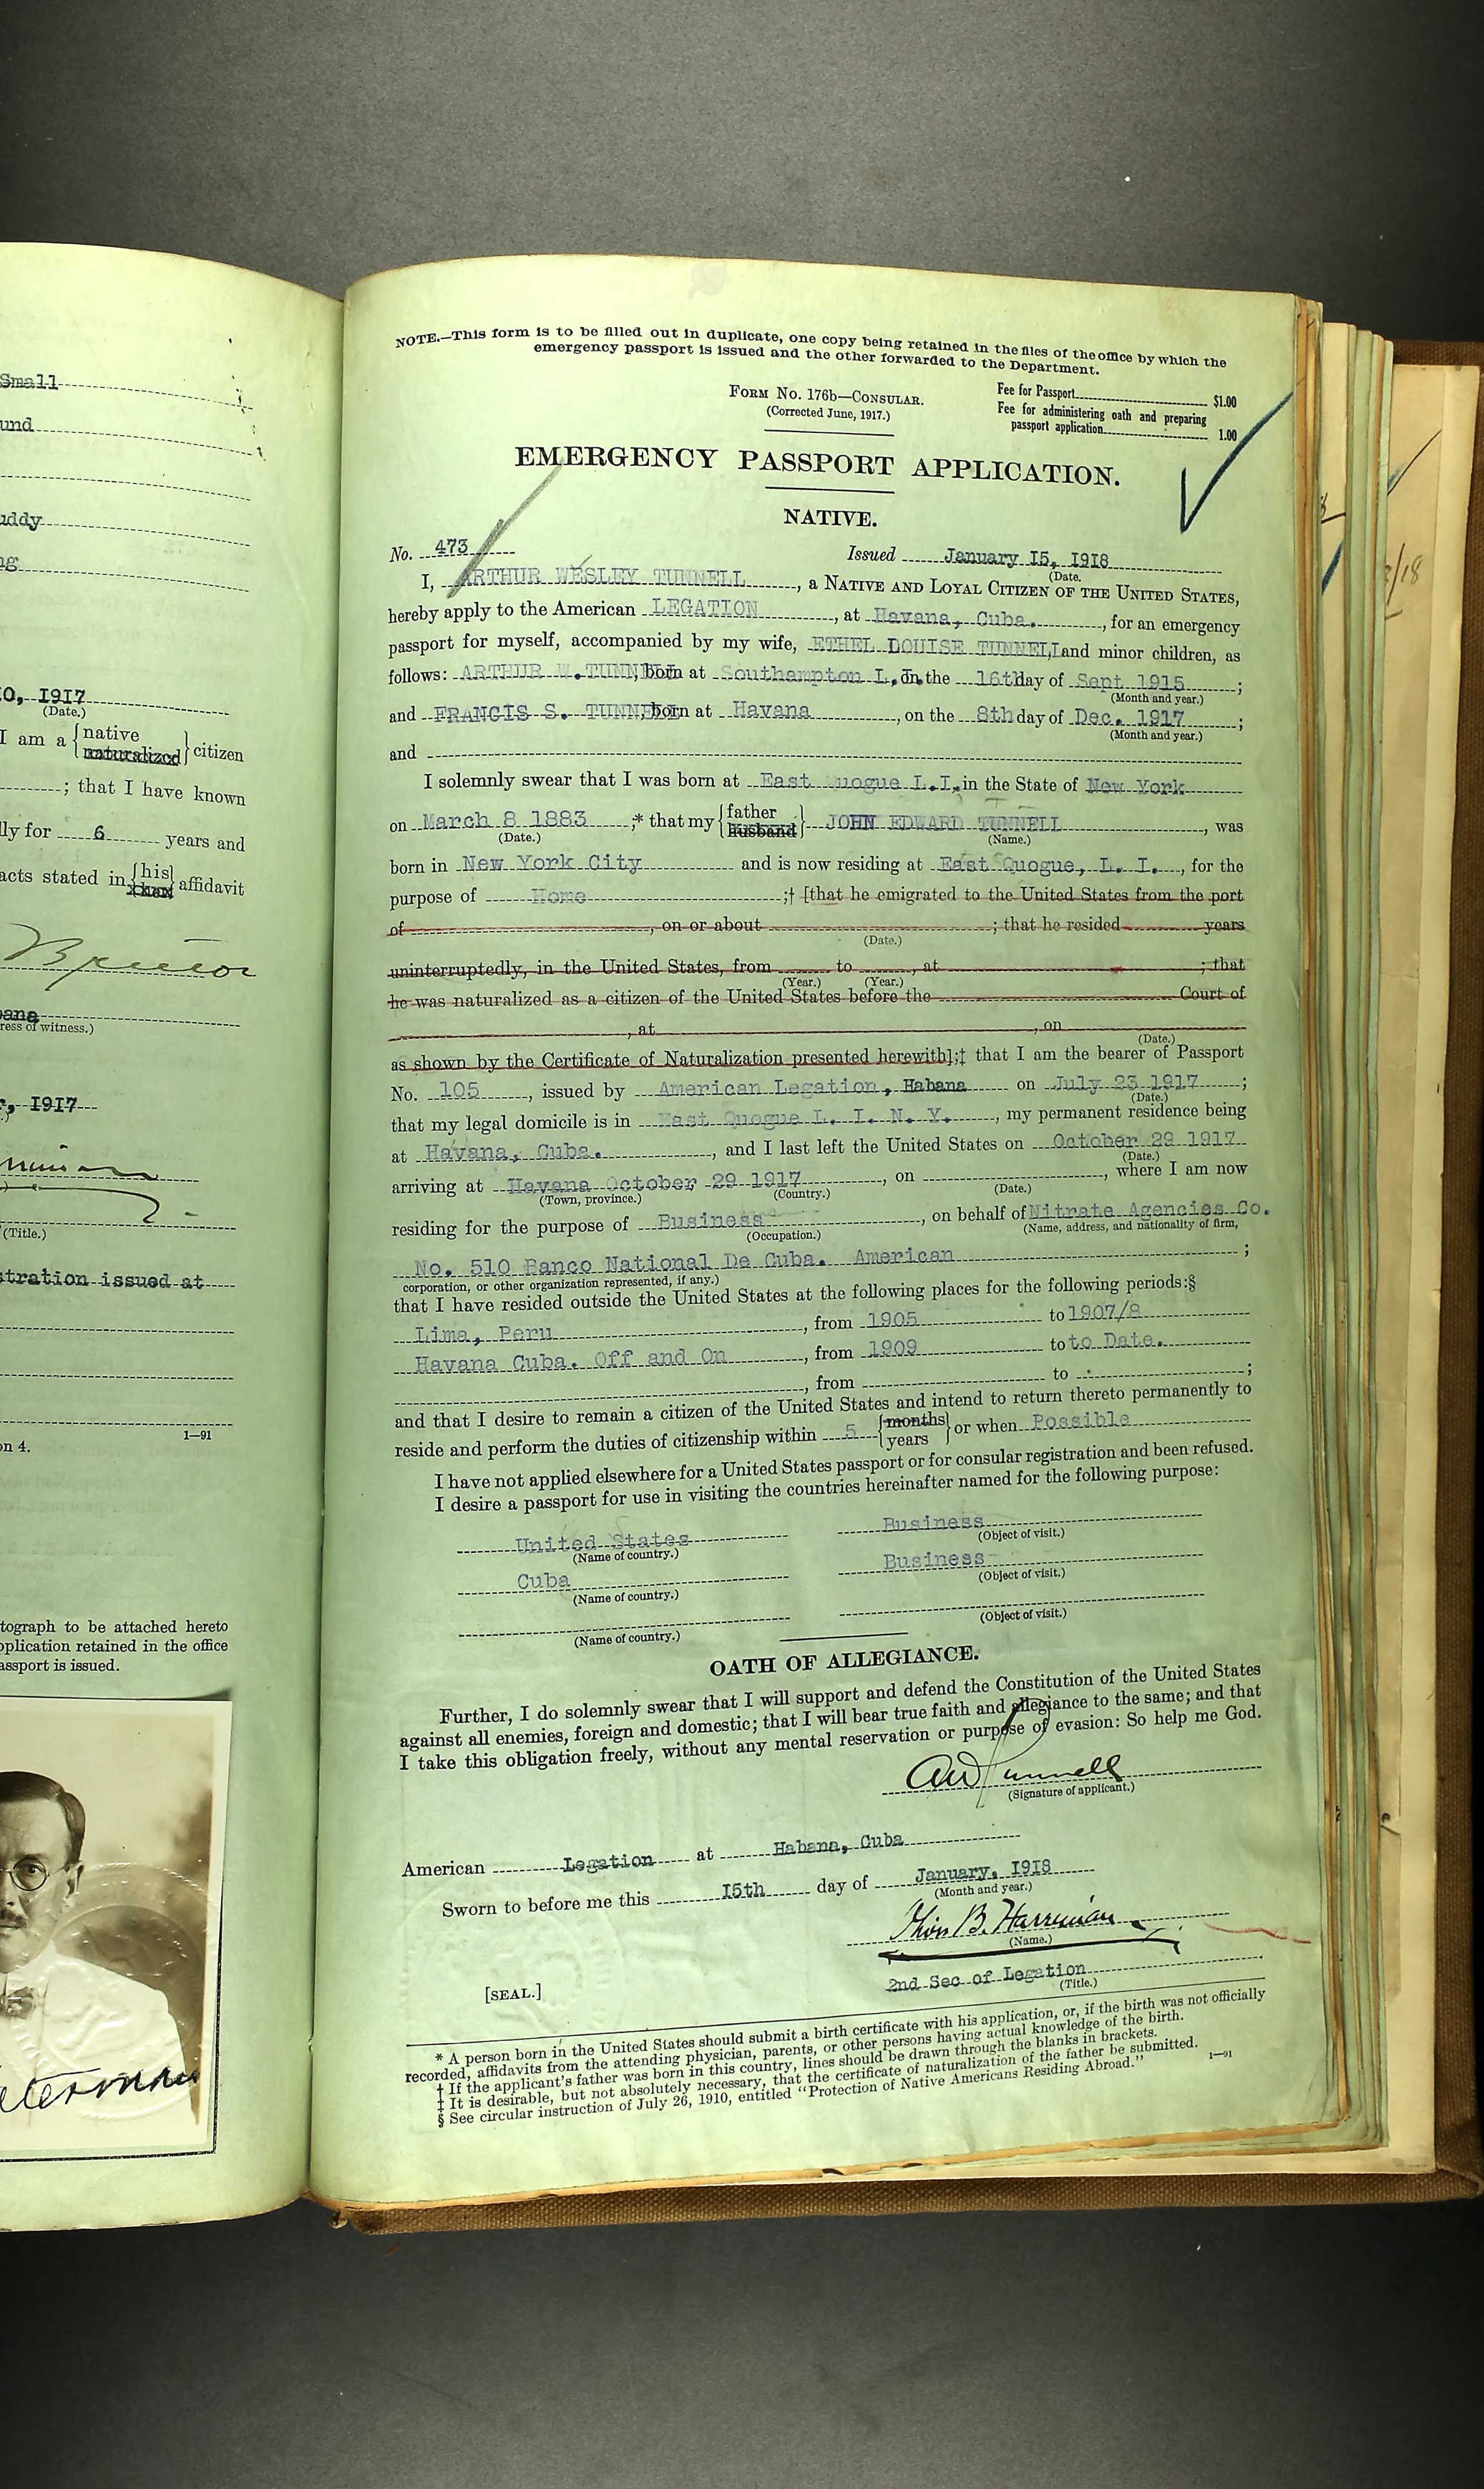 Small
und
uddy
ng
0, 1917
(Date.)
I am a {native
naturalized} citizen
; that I have known
lly for 6 years and
acts stated in {his} affidavit
ress of witness.)
1917
(Title.)
stration issued at
1—91
on 4.
tograph to be attached hereto
pplication retained in the office
assport is issued.
NOTE.—This form is to be filled out in duplicate, one copy being retained in the files of the office by which the
emergency passport is issued and the other forwarded to the Department.
FORM NO. 176b—CONSULAR.
(Corrected June, 1917.)
Fee for Passport $1.00
Fee for administering oath and preparing
passport application 1.00
EMERGENCY PASSPORT APPLICATION.
NATIVE.
No. 473 Issued January 15, 1918
(Date.
I, ARTHUR WESLEY TUNNELL, a NATIVE AND LOYAL CITIZEN OF THE UNITED STATES,
hereby apply to the American LEGATION, at Havana, Cuba., for an emergency
passport for myself, accompanied by my wife, ETHEL LOUISE TUNNELL, and minor children, as
follows: ARTHUR W. TUNNELL, born at Southampton L.I. on the 16th day of Sept 1915;
(Month and year.)
and FRANCIS S. TUNNELL born at Havana, on the 8th day of Dec. 1917;
(Month and year.)
and
I solemnly swear that I was born at East Quogue L.I. in the State of New York
on March 8 1883;* that my {father
husband} JOHN EDWARD TUNNELL, was
(Date.) (Name.)
born in New York City and is now residing at East Quogue, L. I., for the
purpose of Home;† [that he emigrated to the United States from the port
of , on or about ; that he resided years
(Date.)
uninterruptedly, in the United States, from to , at ; that
(Year.) (Year.)
he was naturalized as a citizen of the United States before the Court of
, at , on
(Date.)
as shown by the Certificate of Naturalization presented herewith];‡ that I am the bearer of Passport
No. 105, issued by American Legation, Habana on July 23 1917;
(Date.)
that my legal domicile is in East Quogue L. I. N. Y., my permanent residence being
at Havana, Cuba., and I last left the United States on October 29 1917
(Date.)
arriving at Havana October 29 1917, on , where I am now
(Town, province.) (Country.) (Date.)
residing for the purpose of Business, on behalf of Nitrate Agencies Co.
(Occupation.) (Name, address, and nationality of firm,
No. 510 Banco National De Cuba. American;
corporation, or other organization represented, if any.)
that I have resided outside the United States at the following places for the following periods:§
Lima, Peru, from 1905 to 1907/8
Havana Cuba. Off and On, from 1909 to to Date.
, from to ;
and that I desire to remain a citizen of the United States and intend to return thereto permanently to
reside and perform the duties of citizenship within 5 {months
years} or when Possible
I have not applied elsewhere for a United States passport or for consular registration and been refused.
I desire a passport for use in visiting the countries hereinafter named for the following purpose:
United States Business
(Name of country.) (Object of visit.)
Cuba Business
(Name of country.) (Object of visit.)
(Name of country.) (Object of visit.)
OATH OF ALLEGIANCE.
Further, I do solemnly swear that I will support and defend the Constitution of the United States
against all enemies, foreign and domestic; that I will bear true faith and allegiance to the same; and that
I take this obligation freely, without any mental reservation or purpose of evasion: So help me God.
AW Tunnell
(Signature of applicant.)
American Legation at Habana, Cuba
Sworn to before me this 15th day of January, 1918
(Month and year.)
B. Harriman
(Name.)
[SEAL.]
2nd Sec of Legation
(Title.)
* A person born in the United States should submit a birth certificate with his application, or, if the birth was not officially
recorded, affidavits from the attending physician, parents, or other persons having actual knowledge of the birth.
† If the applicant's father was born in this country, lines should be drawn through the blanks in brackets.
‡ It is desirable, but not absolutely necessary, that the certificate of naturalization of the father be submitted.
§ See circular instruction of July 26, 1910, entitled "Protection of Native Americans Residing Abroad."
1—91